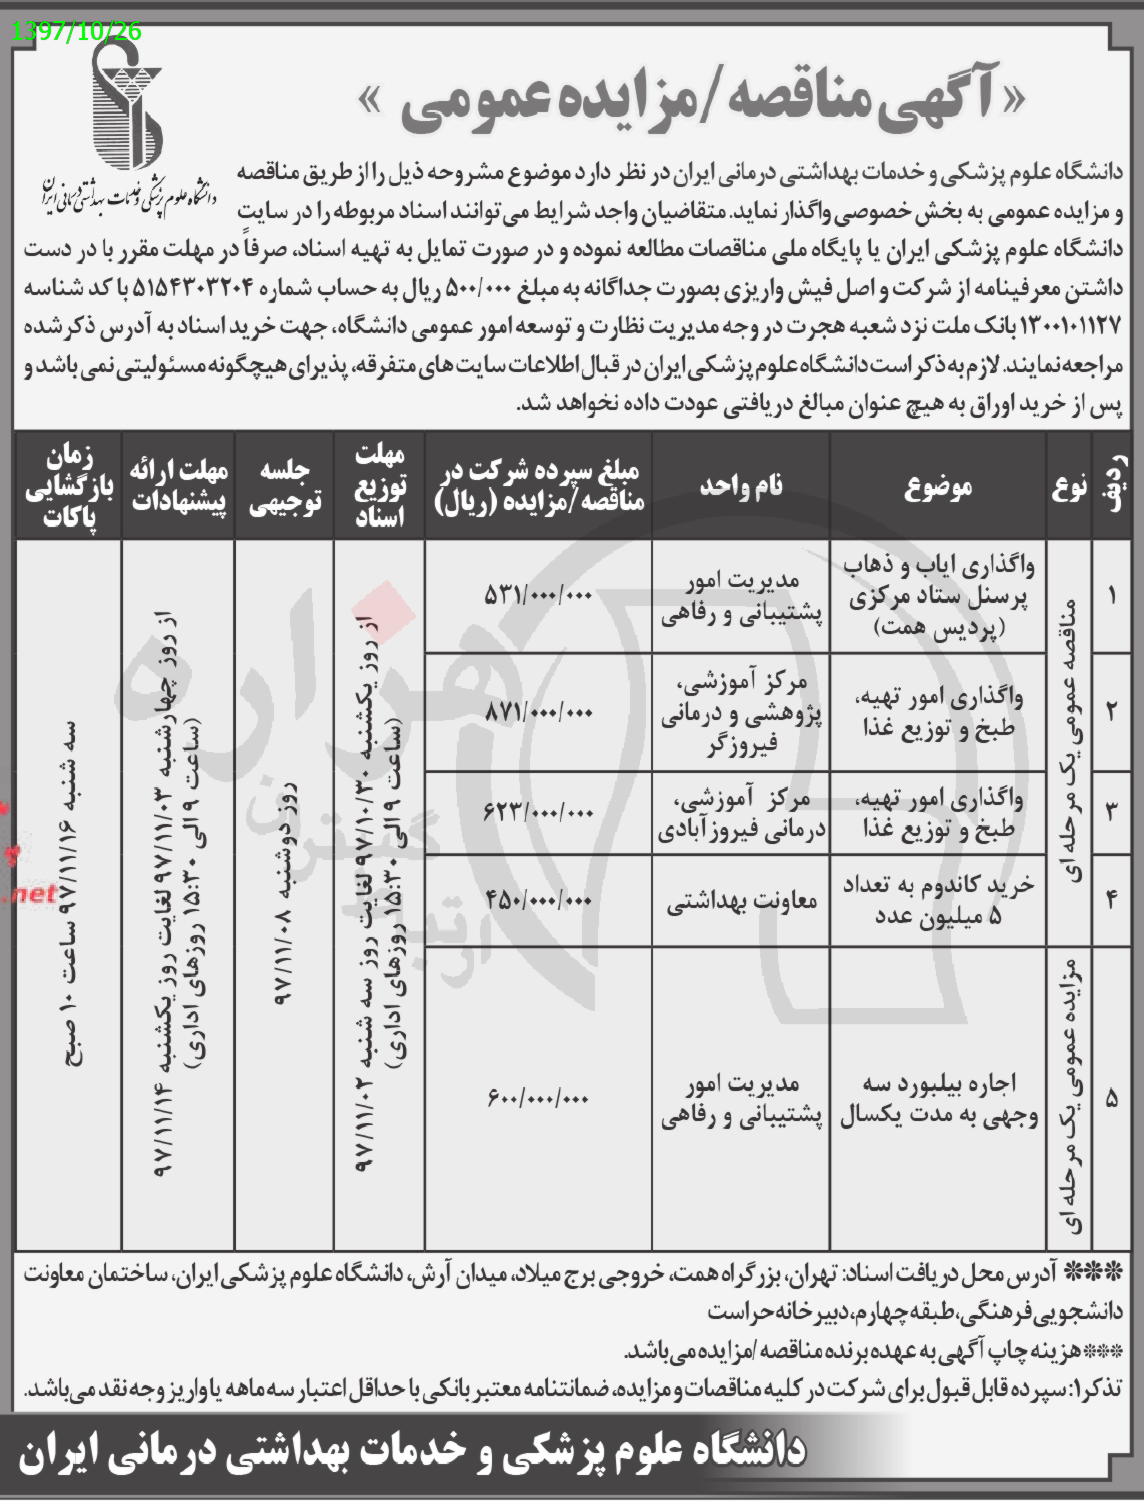 1397/10/26
«آگهی مناقصه/مزایده عمومی»
دانشگاه علوم پزشکی و خدمات بهداشتی درمانی ایران
دانشگاه علوم پزشکی و خدمات بهداشتی درمانی ایران در نظر دارد موضوع مشروحه ذیل را از طریق مناقصه
و مزایده عمومی به بخش خصوصی واگذار نماید. متقاضیان واجد شرایط می‌توانند اسناد مربوطه را در سایت
دانشگاه علوم پزشکی ایران یا پایگاه ملی مناقصات مطالعه نموده و در صورت تمایل به تهیه اسناد، صرفاً در مهلت مقرر با در دست
داشتن معرفینامه از شرکت و اصل فیش واریزی بصورت جداگانه به مبلغ ۵۰۰/۰۰۰ ریال به حساب شماره ۵۱۵۴۳۰۳۲۰۴ با کد شناسه
۱۳۰۰۱۰۱۱۲۷ بانک ملت نزد شعبه هجرت در وجه مدیریت نظارت و توسعه امور عمومی دانشگاه، جهت خرید اسناد به آدرس ذکر شده
مراجعه نمایند. لازم به ذکر است دانشگاه علوم پزشکی ایران در قبال اطلاعات سایت های متفرقه، پذیرای هیچگونه مسئولیتی نمی باشد و
پس از خرید اوراق به هیچ عنوان مبالغ دریافتی عودت داده نخواهد شد.
ردیف
نوع
موضوع
نام واحد
مبلغ سپرده شرکت در
مناقصه/مزایده (ریال)
مهلت
توزیع
اسناد
جلسه
توجیهی
مهلت ارائه
پیشنهادات
زمان
بازگشایی
پاکات
۱
مناقصه عمومی یک مرحله ای
واگذاری ایاب و ذهاب
پرسنل ستاد مرکزی
(پردیس همت)
مدیریت امور
پشتیبانی و رفاهی
۵۳۱/۰۰۰/۰۰۰
از روز یکشنبه ۹۷/۱۰/۳۰ لغایت روز سه شنبه ۹۷/۱۱/۰۲
(ساعت ۹ الی ۱۵:۳۰ روزهای اداری)
روز دوشنبه ۹۷/۱۱/۰۸
از روز چهارشنبه ۹۷/۱۱/۰۳ لغایت روز یکشنبه ۹۷/۱۱/۱۴
(ساعت ۹ الی ۱۵:۳۰ روزهای اداری)
سه شنبه ۹۷/۱۱/۱۶ ساعت ۱۰ صبح
۲
واگذاری امور تهیه،
طبخ و توزیع غذا
مرکز آموزشی،
پژوهشی و درمانی
فیروزگر
۸۷۱/۰۰۰/۰۰۰
۳
واگذاری امور تهیه،
طبخ و توزیع غذا
مرکز آموزشی،
درمانی فیروزآبادی
۶۲۳/۰۰۰/۰۰۰
۴
خرید کاندوم به تعداد
۵ میلیون عدد
معاونت بهداشتی
۴۵۰/۰۰۰/۰۰۰
۵
مزایده عمومی یک مرحله ای
اجاره بیلبورد سه
وجهی به مدت یکسال
مدیریت امور
پشتیبانی و رفاهی
۶۰۰/۰۰۰/۰۰۰
هزاره
.net
*** آدرس محل دریافت اسناد: تهران، بزرگراه همت، خروجی برج میلاد، میدان آرش، دانشگاه علوم پزشکی ایران، ساختمان معاونت
دانشجویی فرهنگی، طبقه چهارم، دبیرخانه حراست
***هزینه چاپ آگهی به عهده برنده مناقصه/مزایده می‌باشد.
تذکر۱: سپرده قابل قبول برای شرکت در کلیه مناقصات و مزایده، ضمانتنامه معتبر بانکی با حداقل اعتبار سه ماهه یا واریز وجه نقد می‌باشد.
دانشگاه علوم پزشکی و خدمات بهداشتی درمانی ایران